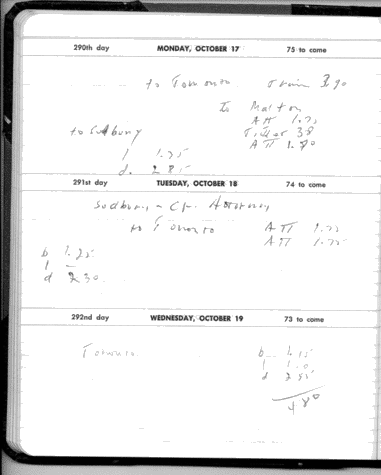 290th day MONDAY, OCTOBER 17 75 to come
to Toronto Train 3.90
To Malton
A 1.75
to Sudbury 38
A
l 1.75
d. 2 85
291st day TUESDAY, OCTOBER 18 74 to come
Sudbury - Attorney
to Toronto A 1.75
A 1.75
b 1.25
l —
d 2 30
292nd day WEDNESDAY, OCTOBER 19 73 to come
Toronto b 1.15
l 1.0
d 2 95
4 80